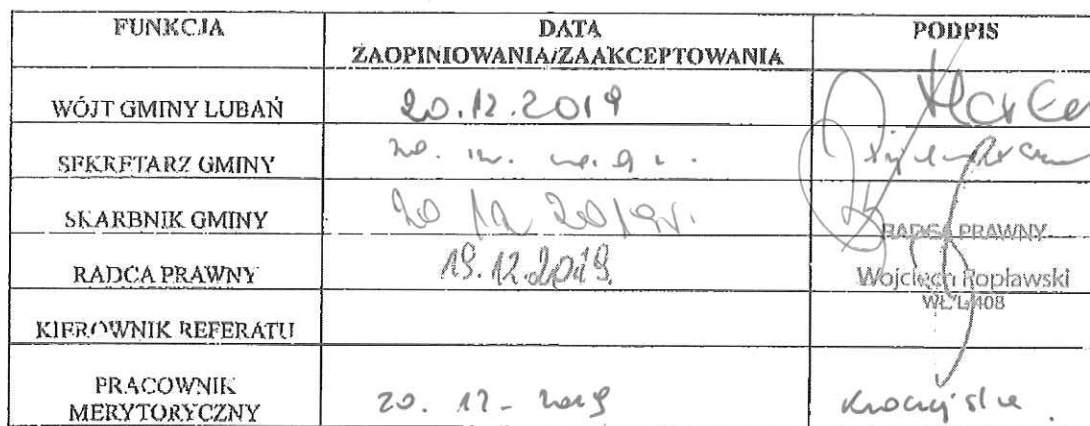 FUNKCJA
DATA
ZAOPINIOWANIA/ZAAKCEPTOWANIA
PODPIS
WÓJT GMINY LUBAŃ
20.12.2019
SEKRETARZ GMINY
SKARBNIK GMINY
20 12 2019r.
RADCA PRAWNY
19.12.2019.
RADCA PRAWNY
Wojciech Popławski
KIEROWNIK REFERATU
PRACOWNIK
MERYTORYCZNY
20. 12 - 2019